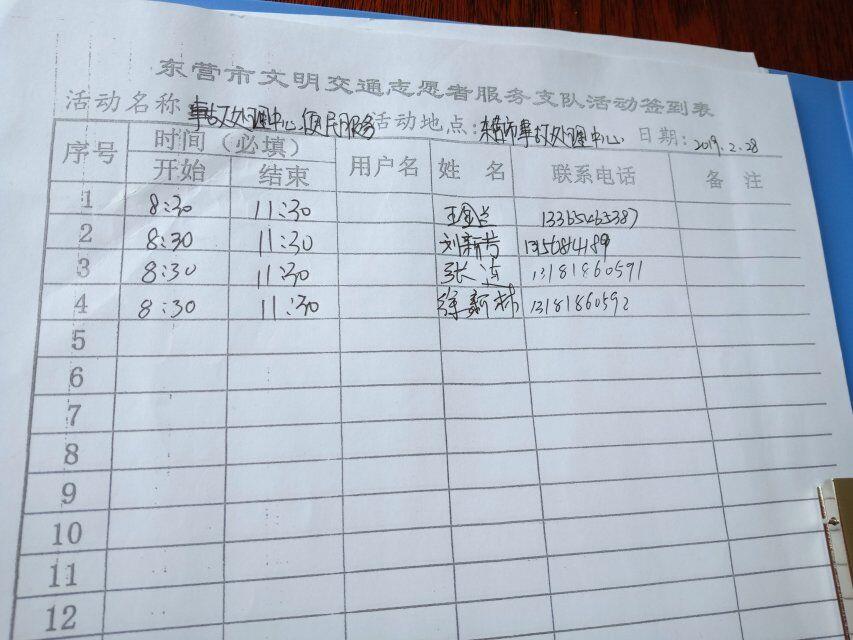 东营市文明交通志愿者服务支队活动签到表
活动名称 事故处理中心便民服务 活动地点：东营市事故处理中心 日期：2019.2.28
序号 时间（必填） 用户名 姓名 联系电话 备注
开始 结束
1 8:30 11:30 13365465387
2 8:30 11:30 刘新昔 13156814189
3 8:30 11:30 张连 13181860591
4 8:30 11:30 徐新林 13181860592
5
6
7
8
9
10
11
12